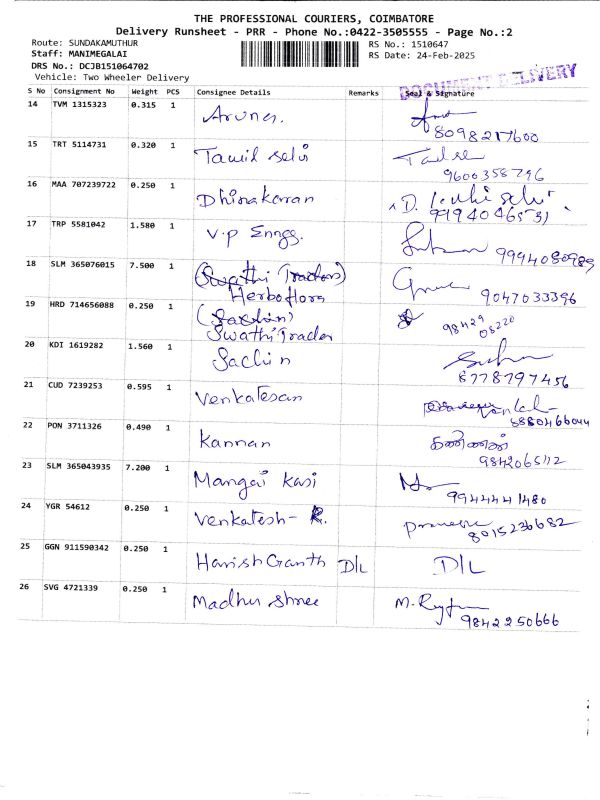 THE PROFESSIONAL COURIERS, COIMBATORE
Delivery Runsheet - PRR - Phone No.:0422-3505555 - Page No.:2
Route: SUNDAKAMUTHUR RS No.: 1510647
Staff: MANIMEGALAI RS Date: 24-Feb-2025
DRS No.: DCJB151064702
Vehicle: Two Wheeler Delivery
DOCUMENT DELIVERY
S No Consignment No Weight PCS Consignee Details Remarks Seal & Signature
14 TVM 1315323 0.315 1 Arunes.
8098217600
15 TRT 5114731 0.320 1 Tamil selvi
9600358796
16 MAA 707239722 0.250 1 Dhinakaran
9994046531
17 TRP 5581042 1.580 1 V.P Enngg.
9994080989
18 SLM 365076015 7.500 1 (Swathi Traders)
Herboflora 9047033396
19 HRD 714656088 0.250 1 (Sachin) 98429
Swathi Trader 05220
20 KDI 1619282 1.560 1 Sachin
8778797456
21 CUD 7239253 0.595 1 Venkatesan
22 PON 3711326 0.490 1 Kannan கண்ணன்
9842065112
23 SLM 365043935 7.200 1 Mangai Kasi
9944441480
24 YGR 54612 0.250 1 Venkatesh - R.
8015236682
25 GGN 911590342 0.250 1 Harish Ganth D/L D/L
26 SVG 4721339 0.250 1 Madhu Shree
9842250666